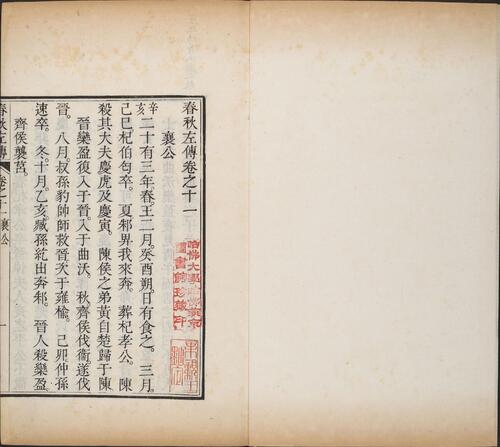 春秋左傳卷之十一
襄公
辛亥
二十有三年春王二月。癸酉朔。日有食之。三月。
己巳杞伯匄卒。夏邾畀我來奔。葬杞孝公。陳
殺其大夫慶虎及慶寅。陳侯之弟黃自楚歸于陳
晉欒盈復入于晉。入于曲沃。秋齊侯伐衞。遂伐
晉。八月叔孫豹帥師救晉次于雍榆。己卯仲孫
速卒。冬。十月。乙亥。臧孫紇出奔邾。晉人殺欒盈。
齊侯襲莒。
春秋左傳
卷之十一襄公
一
哈佛大學
圖書館珍藏印